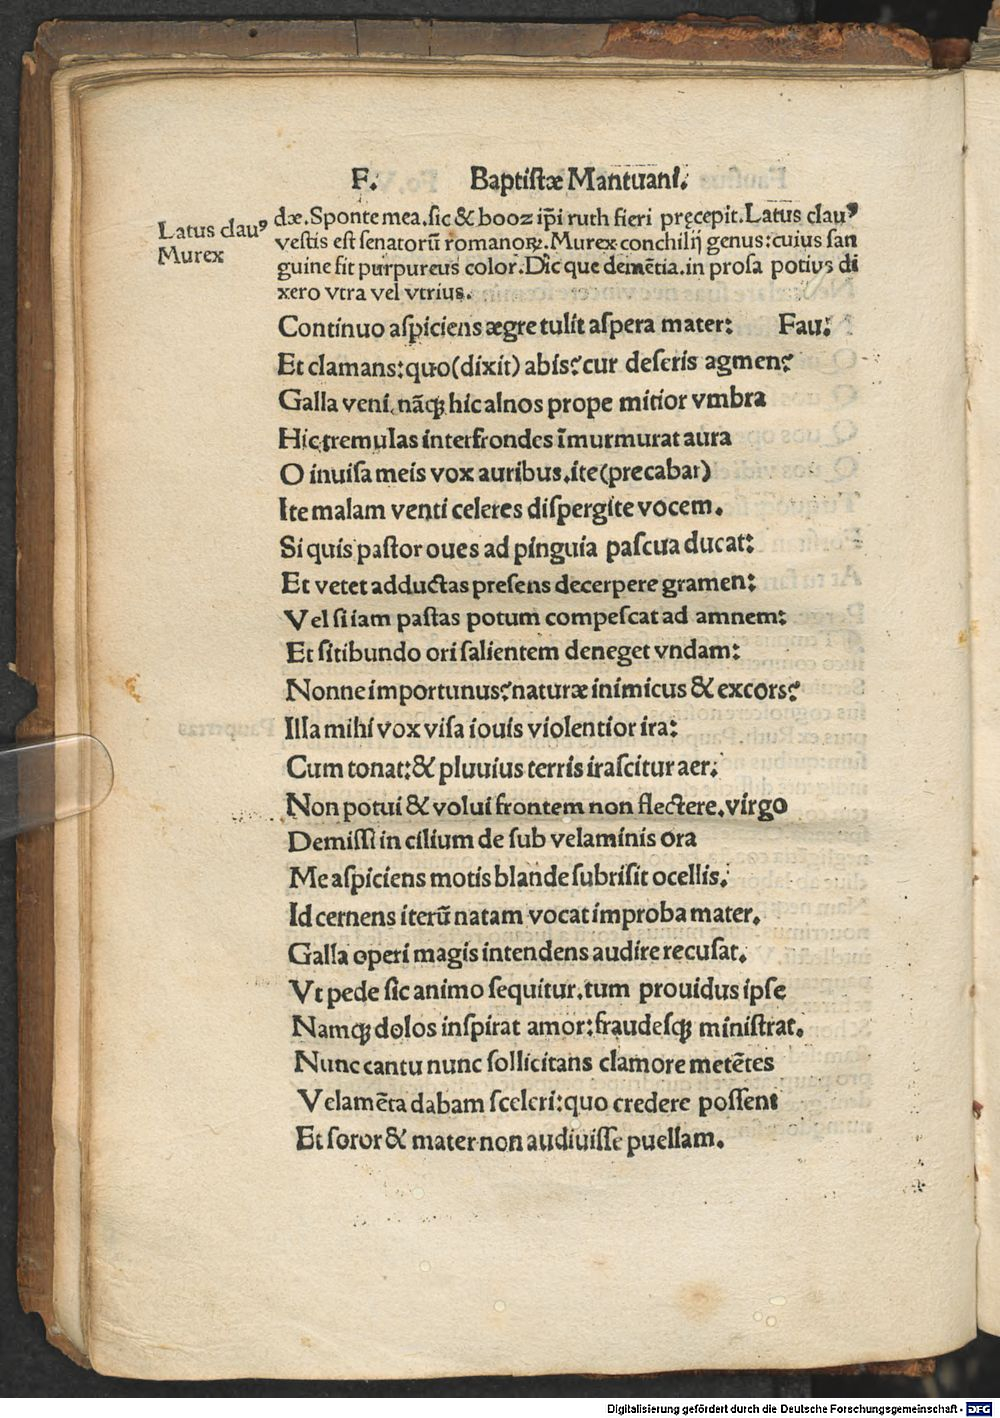 F. Baptistæ Mantuani.
Latus clauꝰ
Murex
dæ. Sponte mea. sic & booz ip̄i ruth fieri pręcepit. Latus clauꝰ
vestis est senatorū romanoꝝ. Murex conchilij genus: cuius san
guine fit purpureus color. Dic que demētia. in prosa potius di
xero vtra vel vtrius.
Continuo aspiciens ægre tulit aspera mater: Fau:
Et clamans: quo (dixit) abis? cur deseris agmen?
Galla veni, nāqꝫ hic alnos prope mitior vmbra
Hic tremulas inter frondes īmurmurat aura
O inuisa meis vox auribus. ite (precabar)
Ite malam venti celeres dispergite vocem.
Si quis pastor oues ad pinguia pascua ducat:
Et vetet adductas presens decerpere gramen:
Vel si iam pastas potum compescat ad amnem:
Et sitibundo ori salientem deneget vndam:
Nonne importunus? naturæ inimicus & excors?
Illa mihi vox visa iouis violentior ira:
Cum tonat: & pluuius terris irascitur aer:
Non potui & volui frontem non flectere. virgo
Demissi in cilium de sub velaminis ora
Me aspiciens motis blande subrisit ocellis.
Id cernens iterū natam vocat improba mater.
Galla operi magis intendens audire recusat.
Vt pede sic animo sequitur. tum prouidus ipse
Namqꝫ dolos inspirat amor: fraudesqꝫ ministrat.
Nunc cantu nunc sollicitans clamore metētes
Velamēta dabam sceleri: quo credere possent
Et soror & mater non audiuisse puellam.
Digitalisierung gefördert durch die Deutsche Forschungsgemeinschaft - DFG